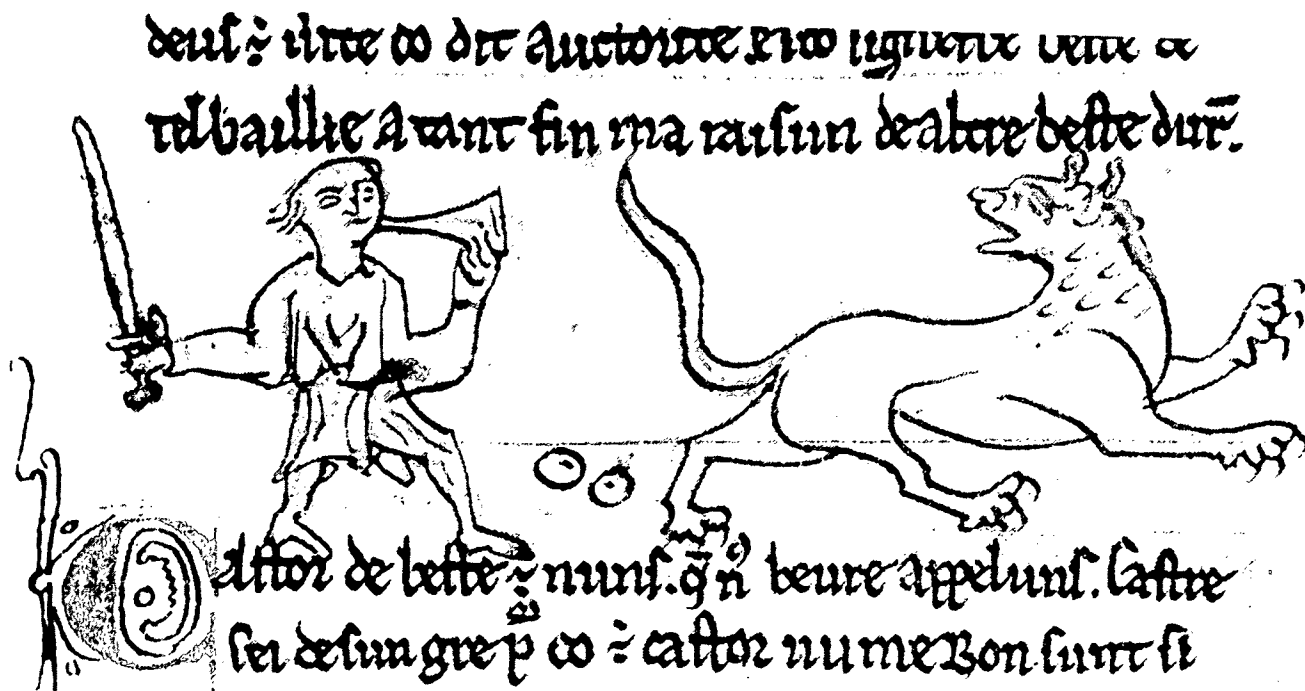 deus ÷ co dit auctorite E ico signefie beste de
tel baillie A tant fin ma raisun de altre beste dirū.
Castor de beste ÷ nuns. q̄ n beure appeluns. Castre
sei de sun gre p co ÷ castor nume Bon sunt si